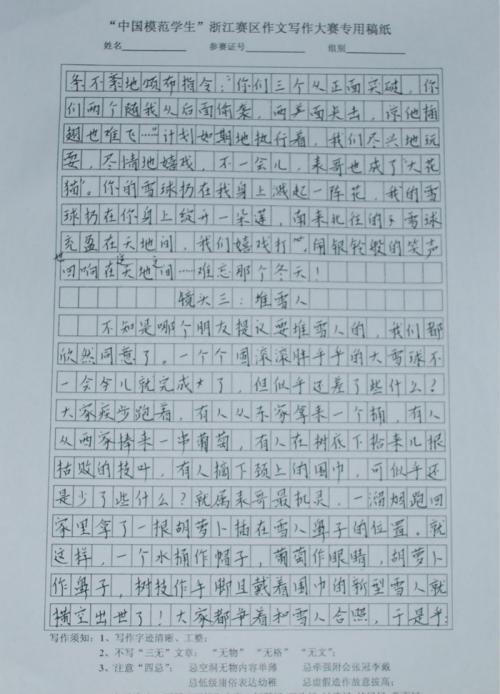 “中国模范学生”浙江赛区作文写作大赛专用稿纸
姓名 参赛证号 组别
条不紊地颁布指令：你们三个从正面突破，你
们两个随我从后面偷袭，两界面夹击，谅他插
翅也难飞……计划如期地执行着，我们尽兴地玩
耍，尽情地嬉戏，不一会儿，表哥也成了“大花
猫”。你的雪球扔在我身上溅起一阵花，我的雪
球扔在你身上绽开一朵莲，南来北往的雪球
充盈在天地间，我们嬉戏打闹，银铃般的笑声
也回响在这天地之间……难忘那个冬天！
镜头三：堆雪人
不知是哪个朋友提议要堆雪人的，我们都
欣然同意了。一个个圆滚滚胖乎乎的大雪球不
一会儿就完成大了，但似乎还差了些什么？
大家疾步跑着，有人从东家拿来一个桶，有人
从西家捧来一串葡萄，有人在树底下拾来几根
枯败的枝叶，有人摘下颈上的围巾，可似乎还
是少了些什么？就属表哥最机灵，一溜烟跑回
家里拿了一根胡萝卜插在雪人鼻子的位置。就
这样，一个水桶作帽子，葡萄作眼睛，胡萝卜
作鼻子，树枝作手脚且戴着围巾的新型雪人就
横空出世了！大家都争着和雪人合照，于是乎
写作须知：1、写作字迹清晰、工整；
2、不写“三无”文章： “无物” “无格” “无文”；
3、注意“四忌”： 忌空洞无物内容单薄 忌牵强附会张冠李戴
忌低级庸俗表达幼稚 忌虚假造作故意拔高；